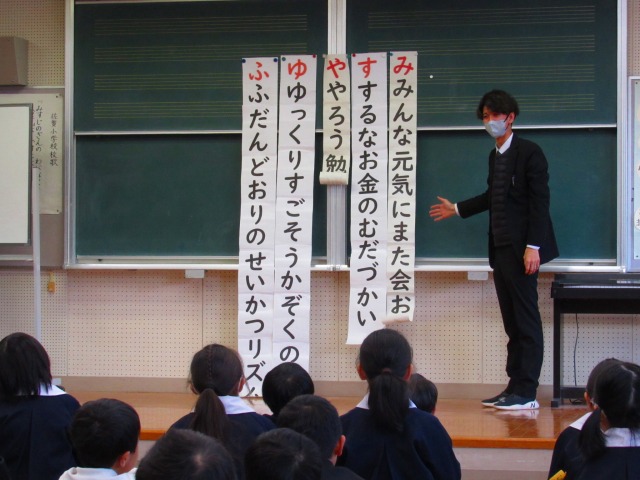 みみんな元気にまた会お
すするなお金のむだづかい
ややろう勉
ゆゆっくりすごそうかぞくの
ふふだんどおりのせいかつリズ
小学校校歌